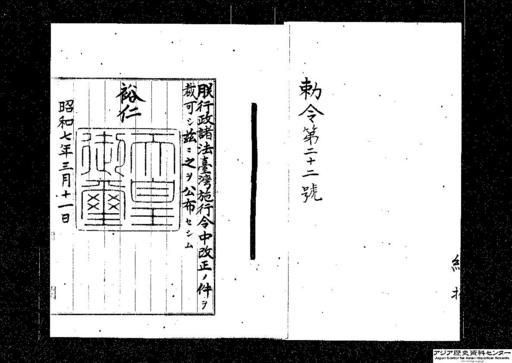 勅令第二十二號
朕行政諸法臺灣施行令中改正ノ件ヲ
裁可シ茲ニ之ヲ公布セシム
裕仁
天皇御璽
昭和七年三月十一日
アジア歴史資料センター
Japan Center for Asian Historical Records